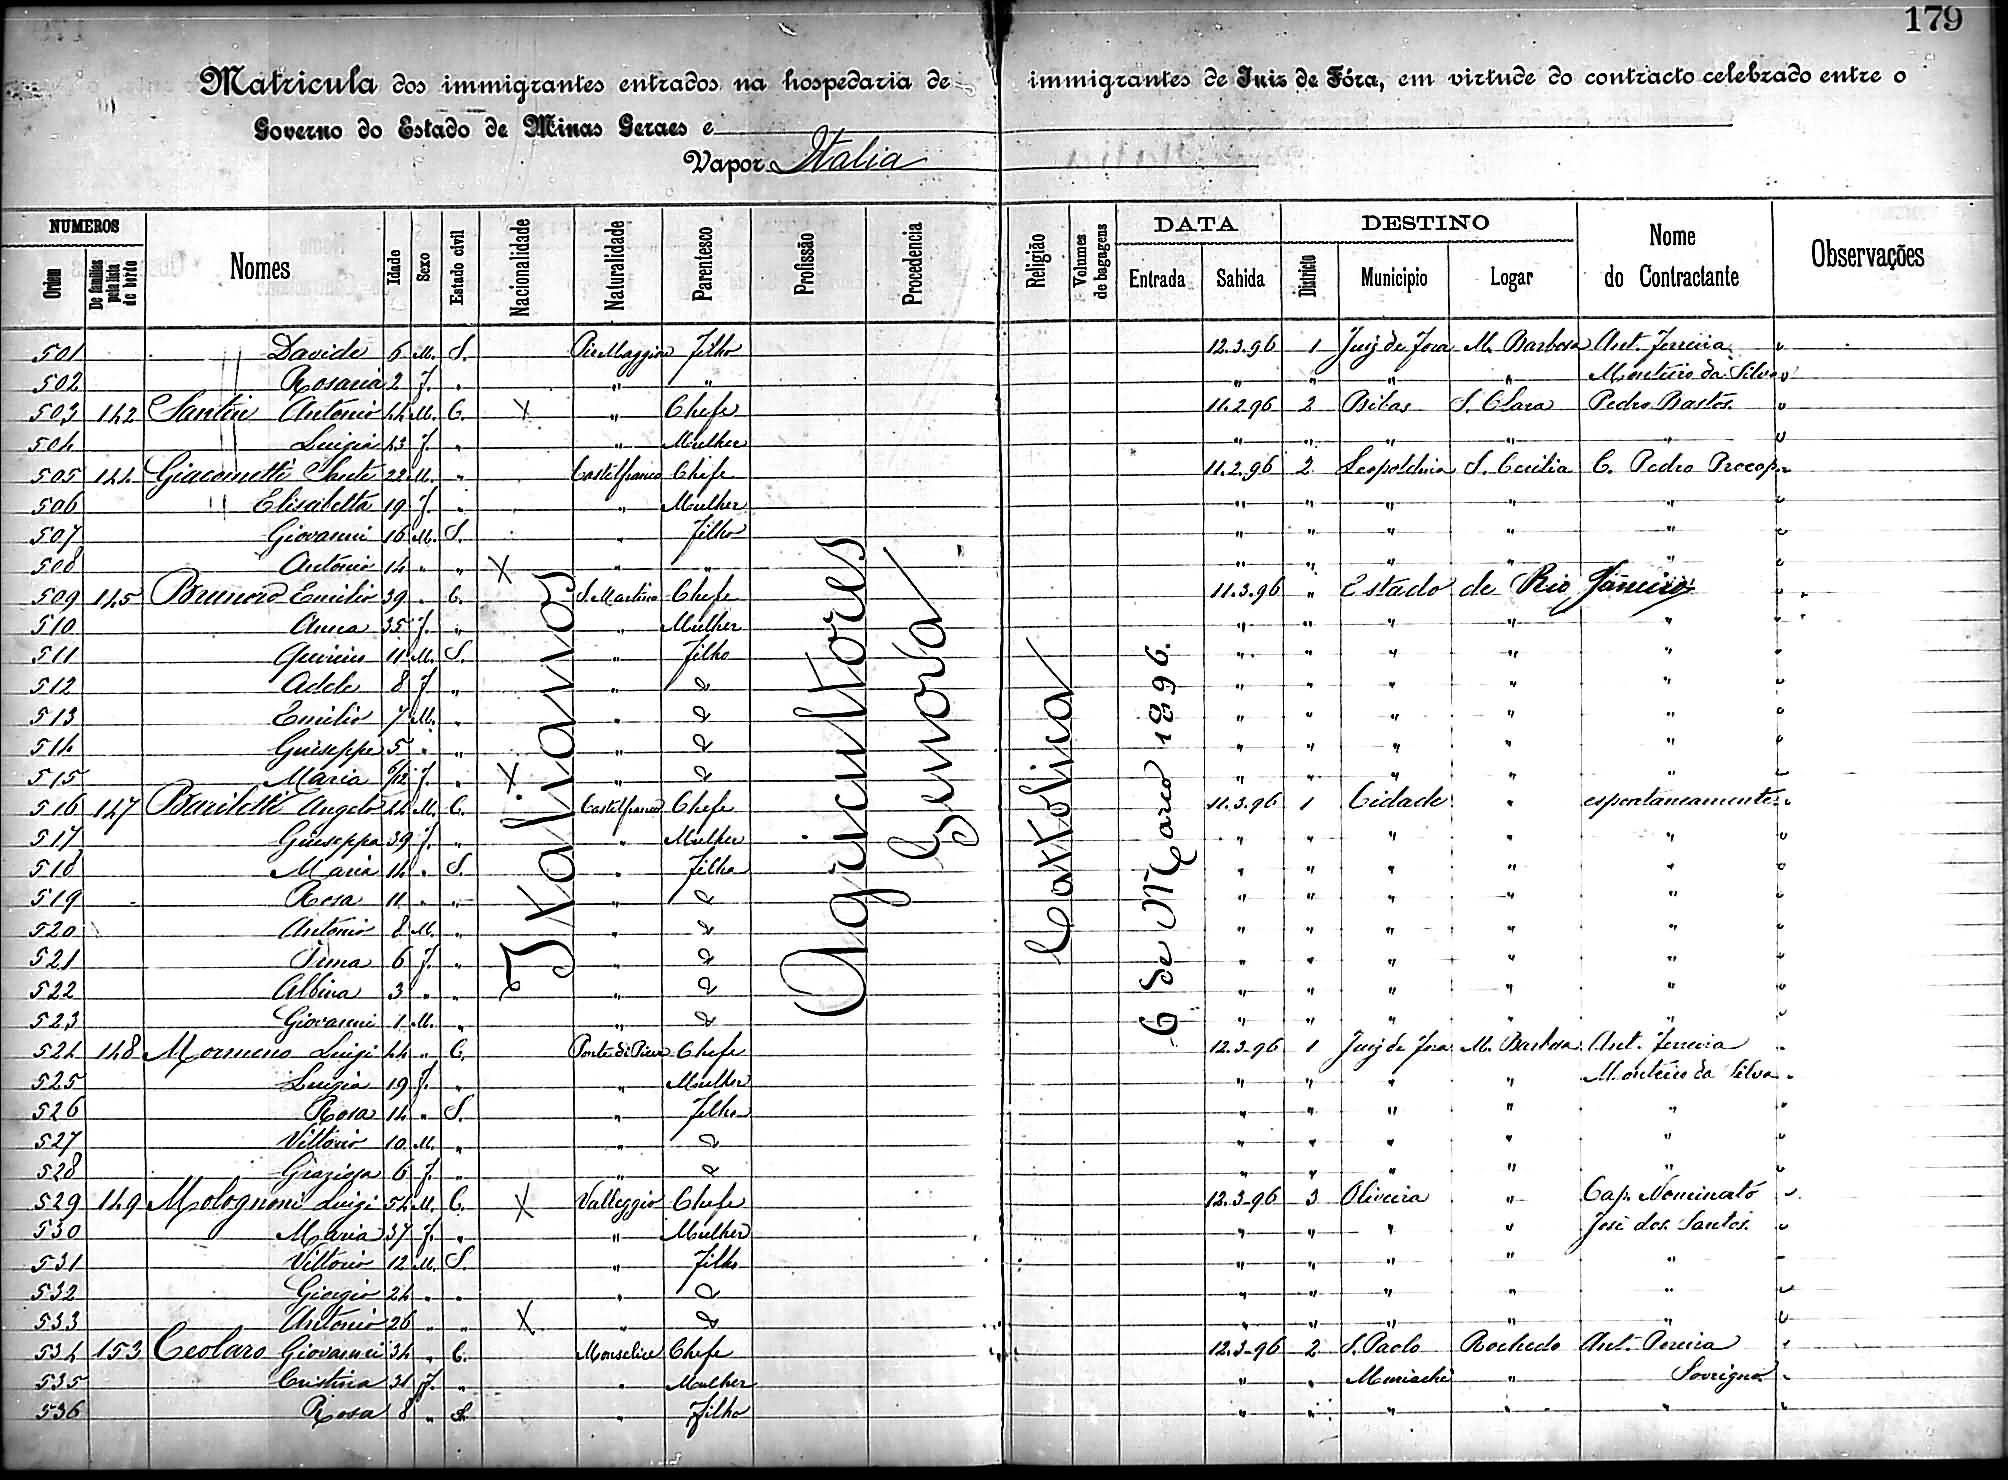 179
Matricula dos immigrantes entrados na hospedaria de immigrantes de Juiz de Fóra, em virtude do contracto celebrado entre o
Governo do Estado de Minas Geraes e
Vapor Italia
NUMEROS Nomes Idade Sexo Estado civil Nacionalidade Naturalidade Parentesco Profissão Procedencia Religião Volumes de bagagens DATA DESTINO Nome do Contractante Observações
Ordem De familias pela lista de bordo Entrada Sahida Districto Municipio Logar
Italianos
Agricultores
Genova
Catholica
6 de Março 1896.
501 " Davide 6 M. S. Filho 12.3.96 1 Juiz de Fora M. Barbosa Ant. Ferreira "
502 " Rosaria 2 F. " " " " " " " Monteiro da Silva "
503 142 Santin Antonio 44 M. C. X " Chefe 11.2.96 2 Bicas S. Clara Pedro Bastos "
504 " Luigia 43 F. " " Mulher " " " " " "
505 144 Giacometti Sante 22 M. " Castelfranco Chefe 11.2.96 2 Leopoldina S. Cecilia C. Pedro Procop. "
506 " Elisabetta 19 F. " " Mulher " " " " " "
507 Giovanni 16 M. S. " Filho " " " " " "
508 Antonio 14 " " X " " " " " " " "
509 145 Brunoro Emilio 39 " C. S. Martino Chefe 11.3.96 " Estado de Rio Janeiro "
510 Anna 35 F. " " Mulher " " " " " "
511 11 M. S. " Filho " " " " " "
512 Adele 8 F. " " " " " " " " "
513 Emilio 7 M. " " " " " " " " "
514 Guiseppe 5 " " " " " " " " " "
515 Maria 6/12 F. " X " " " " " " " "
516 147 Bariletti Angelo 44 M. C. Castelfranco Chefe 11.3.96 1 Cidade " espontaneamente "
517 Guiseppa 39 F. " " Mulher " " " " " "
518 Maria 14 " S. " Filha " " " " " "
519 Rosa 11 " " " " " " " " " "
520 Antonio 8 M. " " " " " " " " "
521 6 F. " " " " " " " " "
522 Albina 3 " " " " " " " " " "
523 Giovanni 1 M. " " " " " " " " "
524 148 Mormeno Luigi 44 " C. Ponte di Piave Chefe 12.3.96 1 Juiz de Fora M. Barbosa Ant. Ferreira "
525 Luigia 19 F. " " Mulher " " " " Monteiro da Silva "
526 Rosa 14 " S. " Filha " " " " " "
527 Vittorio 10 M. " " " " " " " " "
528 Graziosa 6 F. " " " " " " " " "
529 149 Molognoni Luigi 54 M. C. X Valleggio Chefe 12.3.96 3 Oliveira " Cap. Nominato "
530 Maria 37 F. " " Mulher " " " " José dos Santos "
531 Vittorio 12 M. S. " Filho " " " " " "
532 Giorgio 24 " " " " " " " " " "
533 Antonio 26 " " X " " " " " " " "
534 153 Ceolaro Giovanni 34 " C. Monselice Chefe 12.3.96 2 S. Paolo Rochedo Ant. Pereira "
535 Cristina 31 F. " " Mulher " " Muriaché " "
536 Rosa 8 " S. " Filho " " " " " "